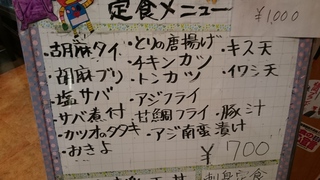 定食メニュー
¥1,000
・胡麻タイ ・とりの唐揚げ ・キス天
・胡麻ブリ ・チキンカツ ・イワシ天
・トンカツ
・塩サバ ・アジフライ
・サバ煮付 ・甘鯛フライ ・豚汁
・カツオのタタキ ・アジ南蛮漬け
・おきよ ¥700